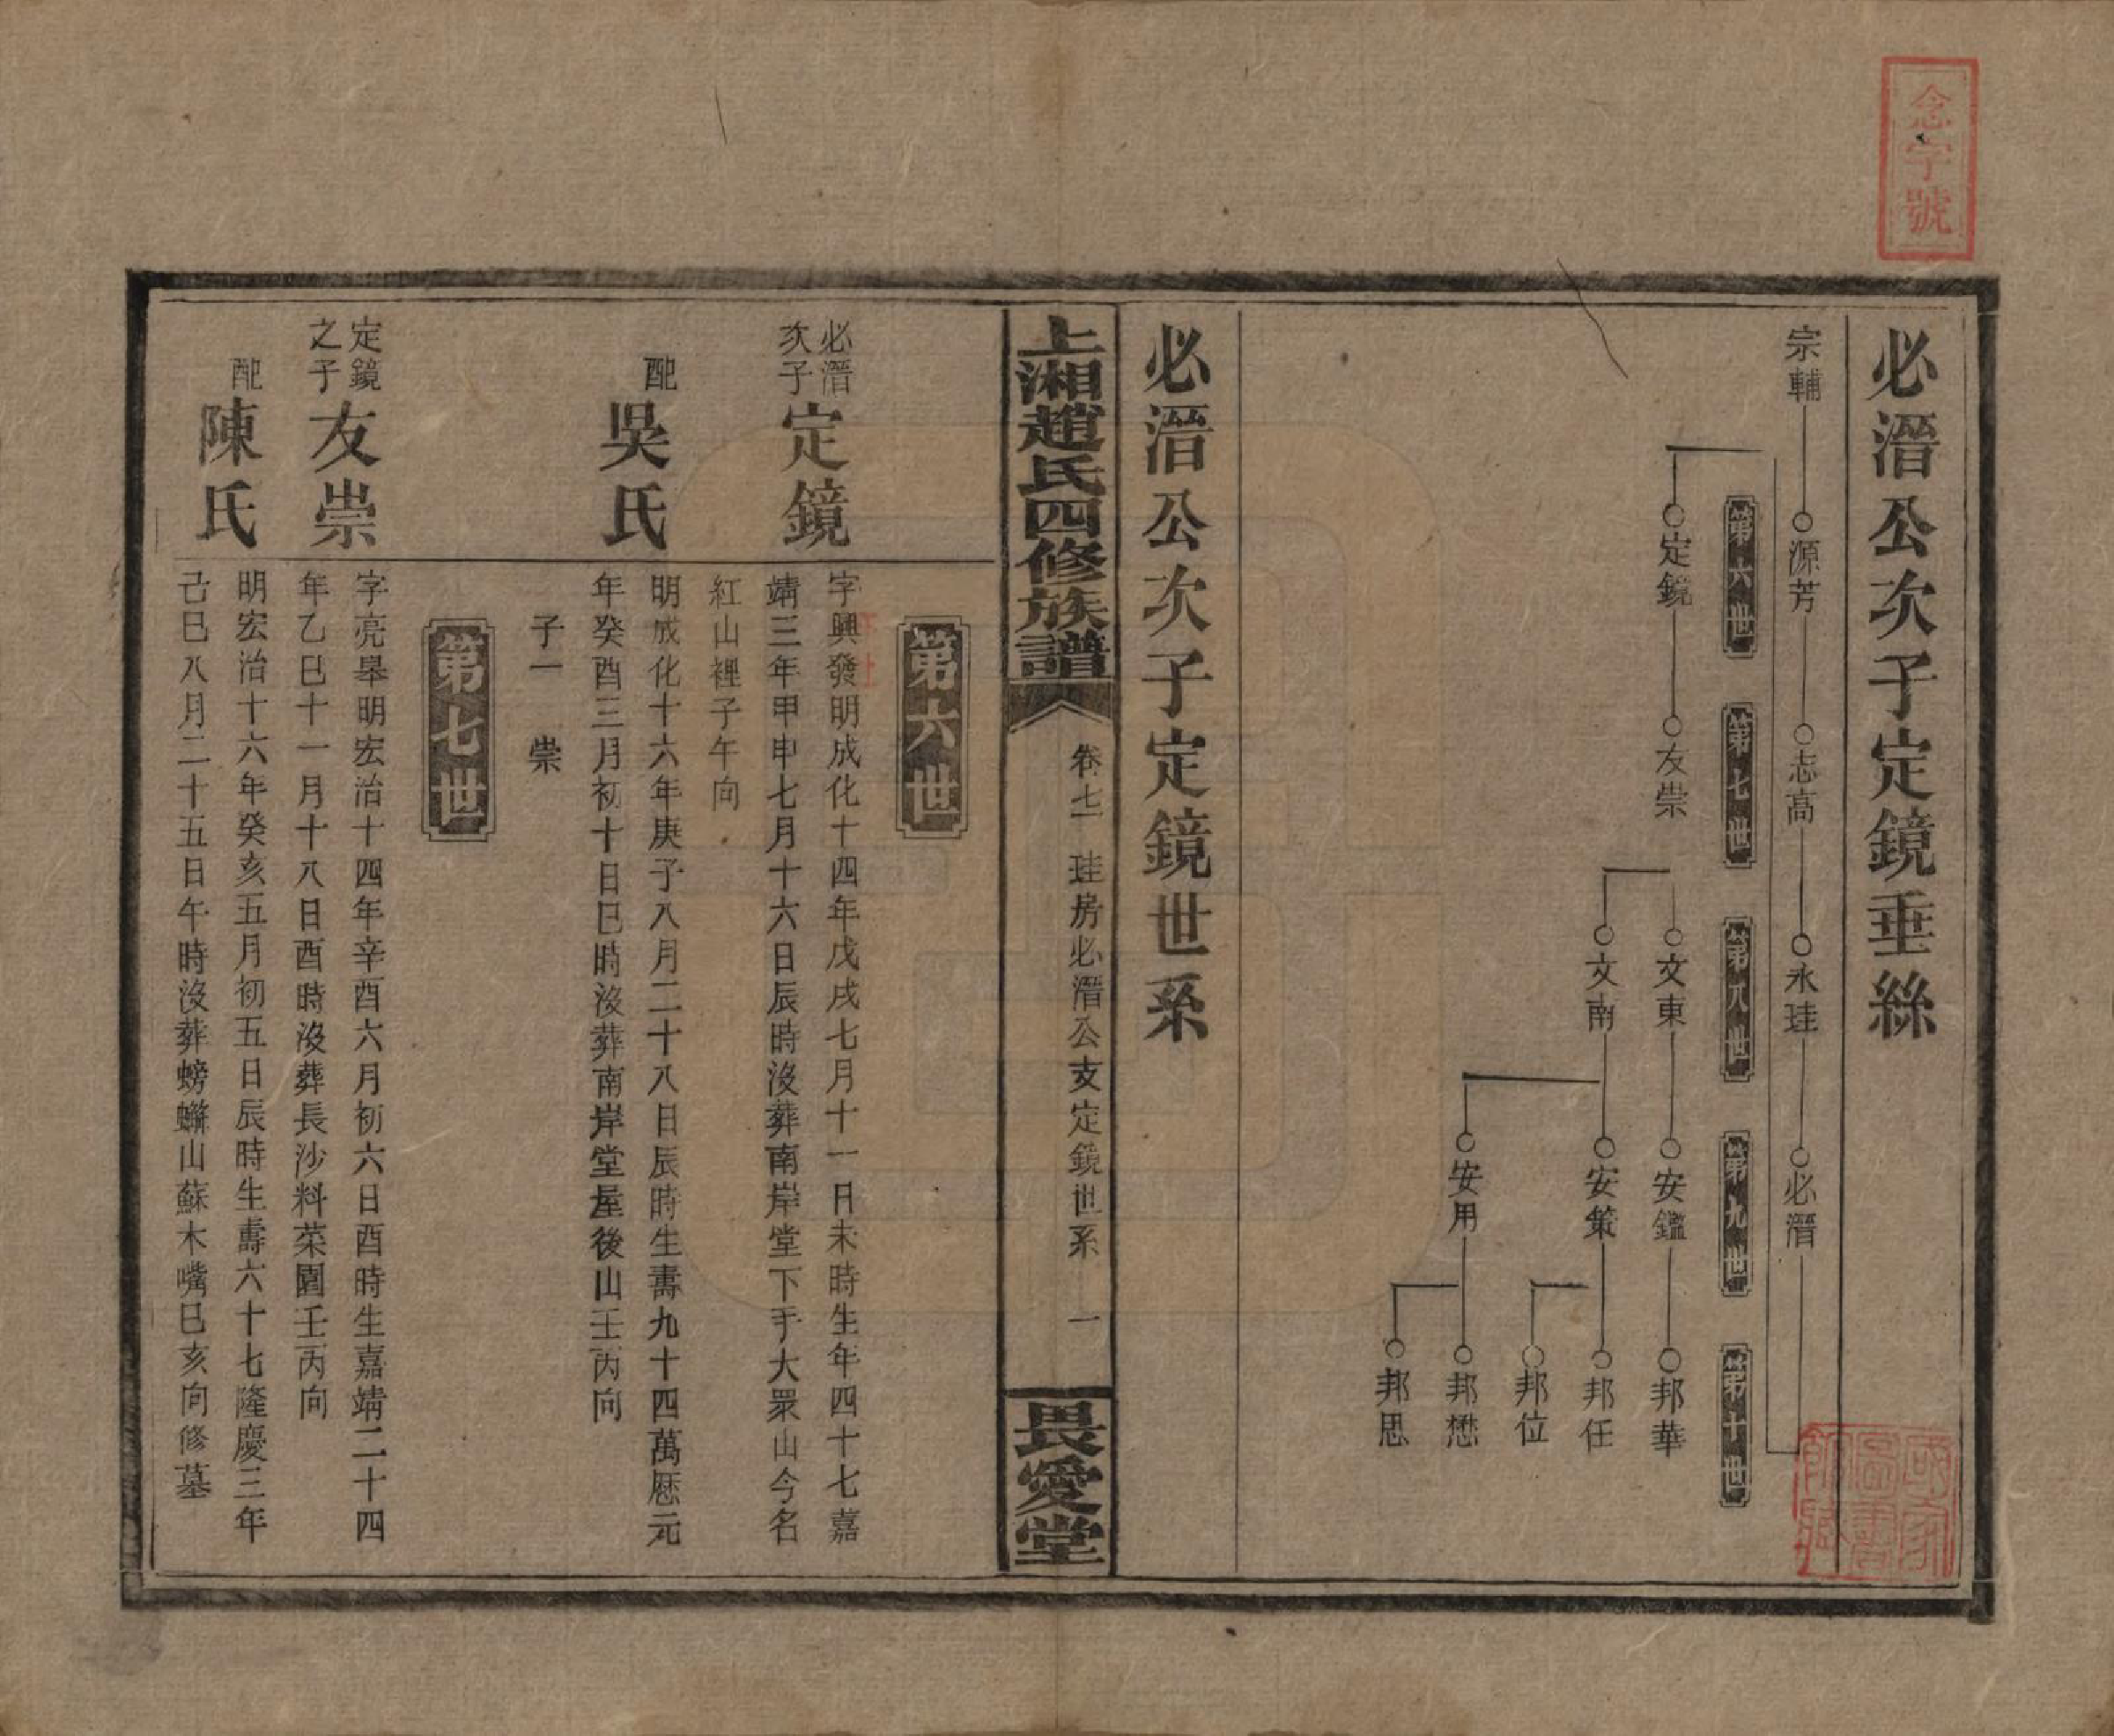 念字號
必潛公次子定鏡垂絲
宗輔
源芳
志高
永珪
必潛
第六世
第七世
第八世
第九世
第十世
定鏡
友崇
文東
安鑑
邦華
文南
安策
邦任
邦位
安用
邦懋
邦思
國家
圖書
館藏
必潛公次子定鏡世系
上湘趙氏四修族譜
卷七 珪房必潛公支定鏡世系 一
畏愛堂
第六世
必潛
次子
定鏡
字興發明成化十四年戊戌七月十一日未時生年四十七嘉
靖三年甲申七月十六日辰時沒葬南岸堂下手大眾山今名
紅山裡子午向
配
吳氏
明成化十六年庚子八月二十八日辰時生壽九十四萬厯元
年癸酉三月初十日巳時沒葬南岸堂屋後山壬丙向
子一 崇
第七世
定鏡
之子
友崇
字亮皋明宏治十四年辛酉六月初六日酉時生嘉靖二十四
年乙巳十一月十八日酉時沒葬長沙料菜園壬丙向
配
陳氏
明宏治十六年癸亥五月初五日辰時生壽六十七隆慶三年
己巳八月二十五日午時沒葬螃蠏山蘇木嘴巳亥向修墓